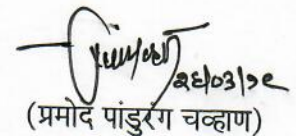 २६/०३/१९
(प्रमोद पांडुरंग चव्हाण)